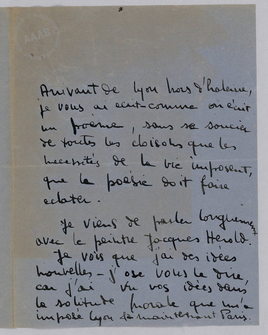 Arrivant de Lyon hors d'haleine,
je vous ai écrit comme on écrit
un poème, sans se soucier
de toutes les cloisons que les
nécessités de la vie imposent,
que la poésie doit faire
éclater.
Je viens de parler longuement
avec le peintre Jacques Hérold.
Je vois que j'ai des idées
nouvelles - j'ose vous le dire
car j'ai vu vos idées dans
la solitude morale que m'a
imposée Lyon et maintenant Paris.